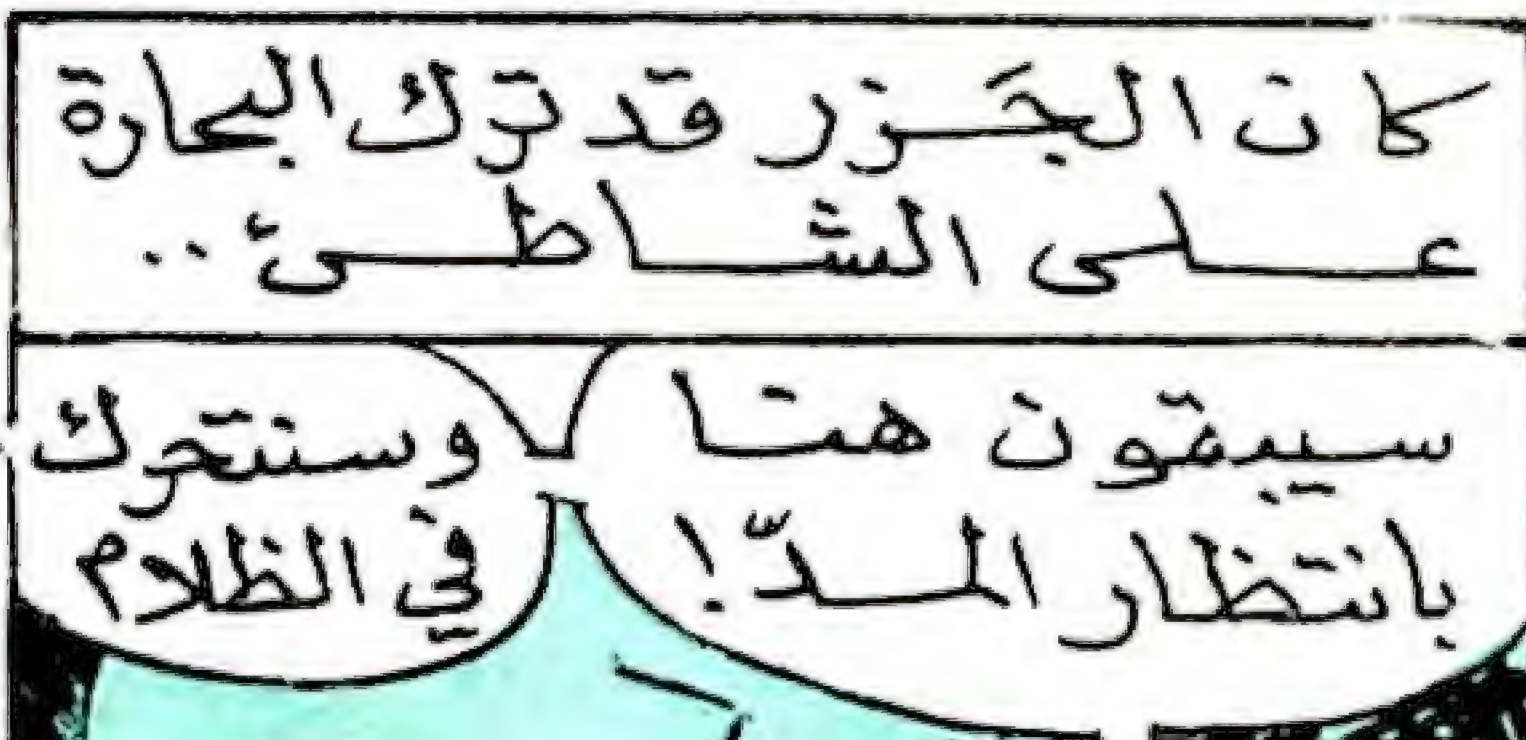 كان الجَزر قد ترك البحارة
على الشاطئ ..
سيبقون هنا
بانتظار المدّ!
وسنتحرك
في الظلام